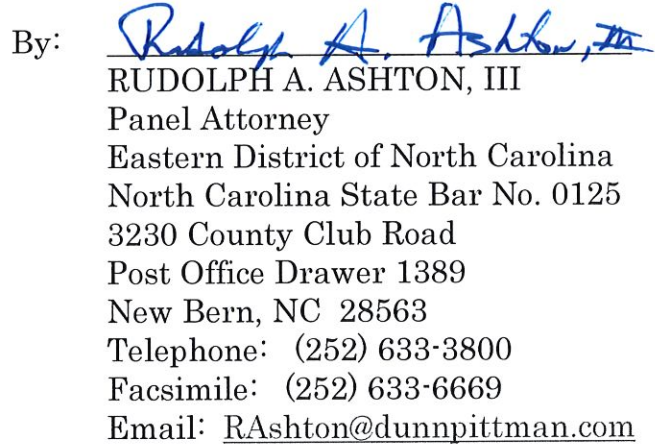 By: Rudolph A. Ashton, III
RUDOLPH A. ASHTON, III
Panel Attorney
Eastern District of North Carolina
North Carolina State Bar No. 0125
3230 County Club Road
Post Office Drawer 1389
New Bern, NC 28563
Telephone: (252) 633-3800
Facsimile: (252) 633-6669
Email: RAshton@dunnpittman.com